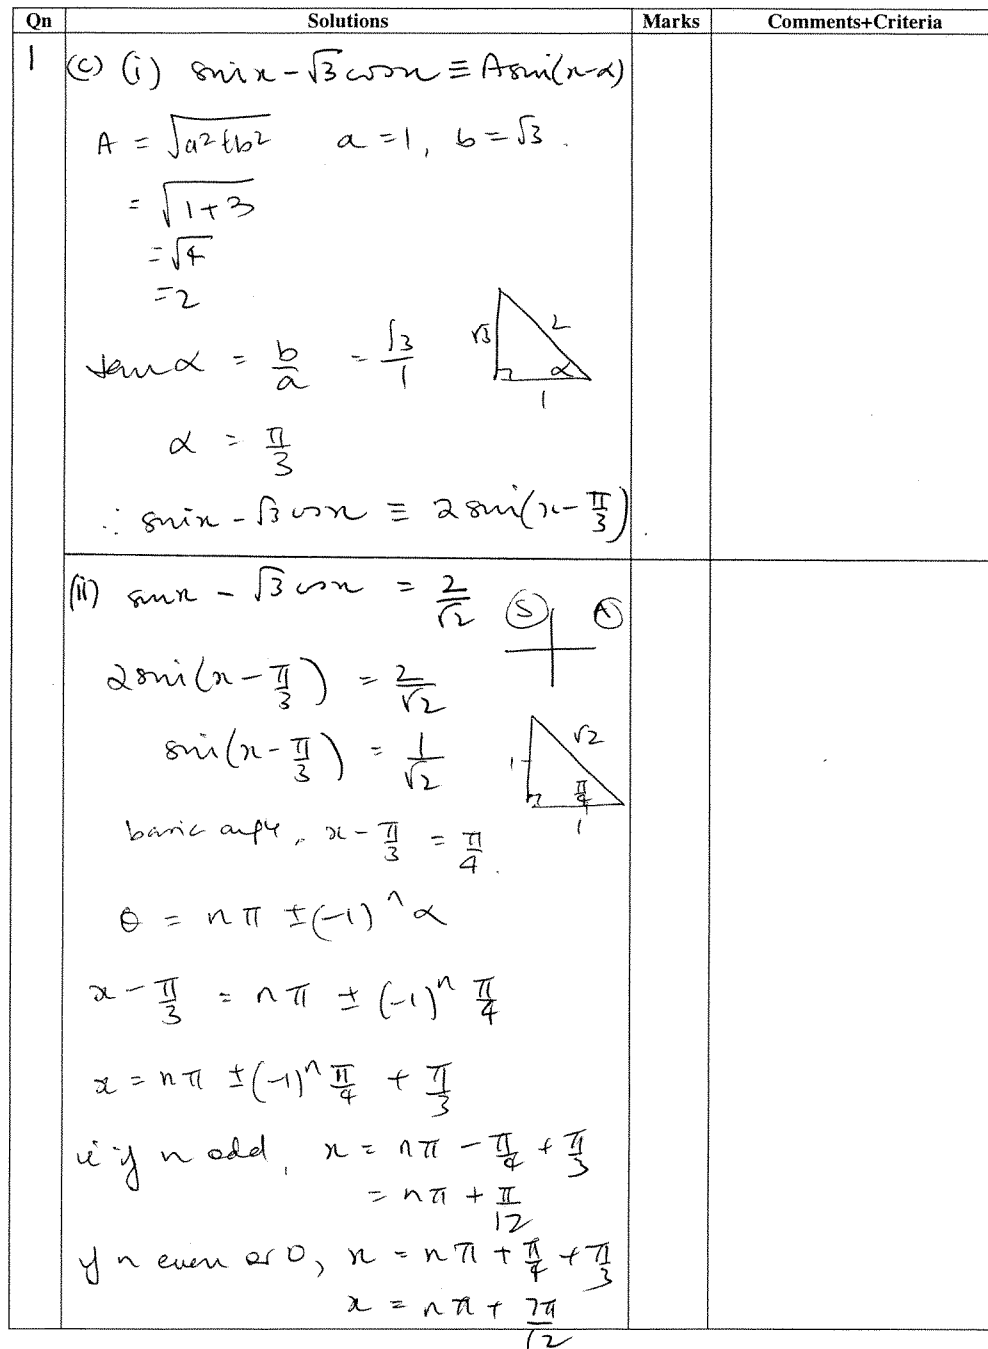 Qn Solutions Marks Comments+Criteria
1 (c) (i) sin x - √3 cos x ≡ A sin(x-α)
A = √(a²+b²) a = 1, b = √3.
= √(1+3)
= √4
= 2
tan α = b/a = √3/1
√3 2 α 1
α = π/3
∴ sin x - √3 cos x ≡ 2 sin(x - π/3)
(ii) sin x - √3 cos x = 2/√2
S A
2 sin(x - π/3) = 2/√2
sin(x - π/3) = 1/√2
1 √2 π/4 1
basic angle, x - π/3 = π/4.
θ = nπ ±(-1)^n α
x - π/3 = nπ ± (-1)^n π/4
x = nπ ±(-1)^n π/4 + π/3
ie if n odd, x = nπ - π/4 + π/3
= nπ + π/12
if n even or 0, x = nπ + π/4 + π/3
x = nπ + 7π/12